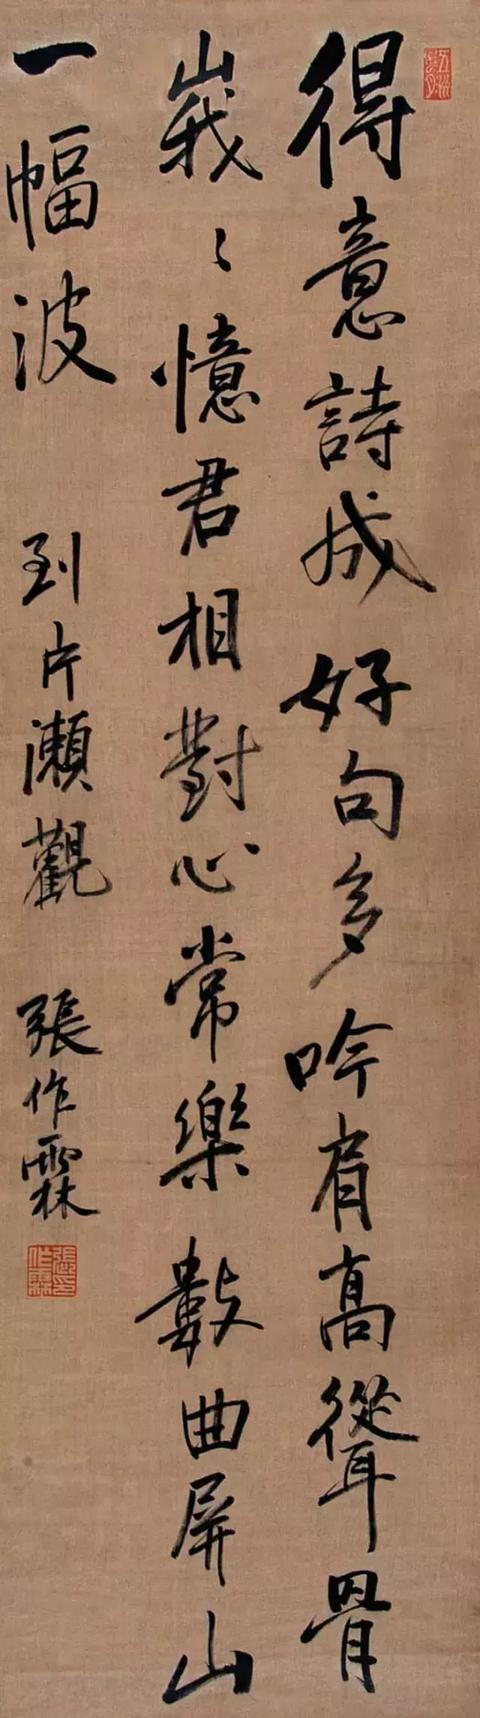 得意詩成好句多吟肩高聳骨
峩〻憶君相對心常樂數曲屏山
一幅波 到片瀨觀 張作霖
張作霖